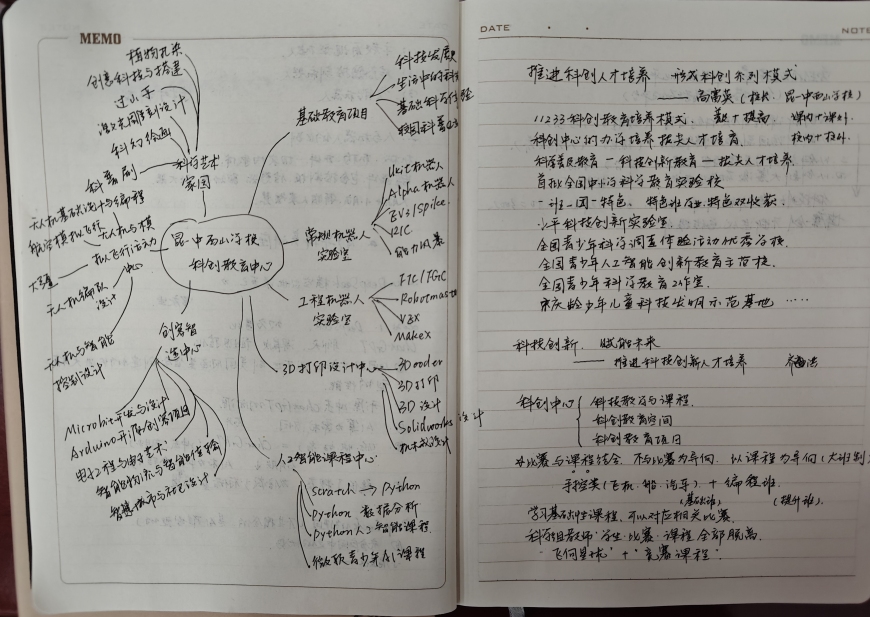 MEMO
植物扎染
创意科技与搭建
过山车
激光周刻设计
科幻绘画
科普剧
科学艺术
家园
无人机基础设计与编程
航空模拟飞行
无人机与模
拟飞行活动
中心
无人机编队
设计
无人机与智能
控制设计
创客智
造中心
Microbit开发与设计
Arduino开源创客项目
电子工程与电子艺术
智能物流与智能体验
智慧城市与社区设计
昆一中西山学校
科创教育中心
基础教育项目
科技发展
生活中的科
基础科学体验
校园科普
常规机器人
实验室
Ukit机器人
Alpha机器人
EV3/Spike
能力风暴
工程机器人
实验室
FTC/FGC
Robotmaster
VEX
MakeX
3D打印设计中心
3Doodler
3D打印
3D设计
Solidworks设计
机械设计
人工智能课程中心
Scratch → Python
Python 数据分析
Python人工智能课程
微软青少年AI课程
DATE
NOTE
推进科创人才培养 形成科创系列模式
——高富英(校长 昆一中西山学校)
11233科创教育培养模式. 普及+提高. 课内+课外.
科创中心的办学培养拔尖人才培育. 校内+校外.
科学普及教育—科技创新教育—拔尖人才培养
首批全国中小学科学教育实验校
一班一团一特色. 特色班 专业特色双收获.
少年科技创新实验室.
全国青少年科学调查体验活动优秀学校.
全国青少年人工智能创新教育示范校.
全国青少年科学教育工作室.
宋庆龄少年儿童科技发明示范基地 ……
科技创新. 赋能未来
—— 推进科技创新人才培养
科创中心 { 科技教育与课程.
科创教育空间
科创教育项目
以比赛与课程结合. 不以比赛为导向. 以课程为导向(大班制)
手控类(飞机. 船. 汽车)+ 编程班.
(基础班) (提升班).
学习基础性课程. 可以对应相关比赛.
科学组教师. 学生. 比赛. 课程 全部脱离.
"+"竞赛课程".